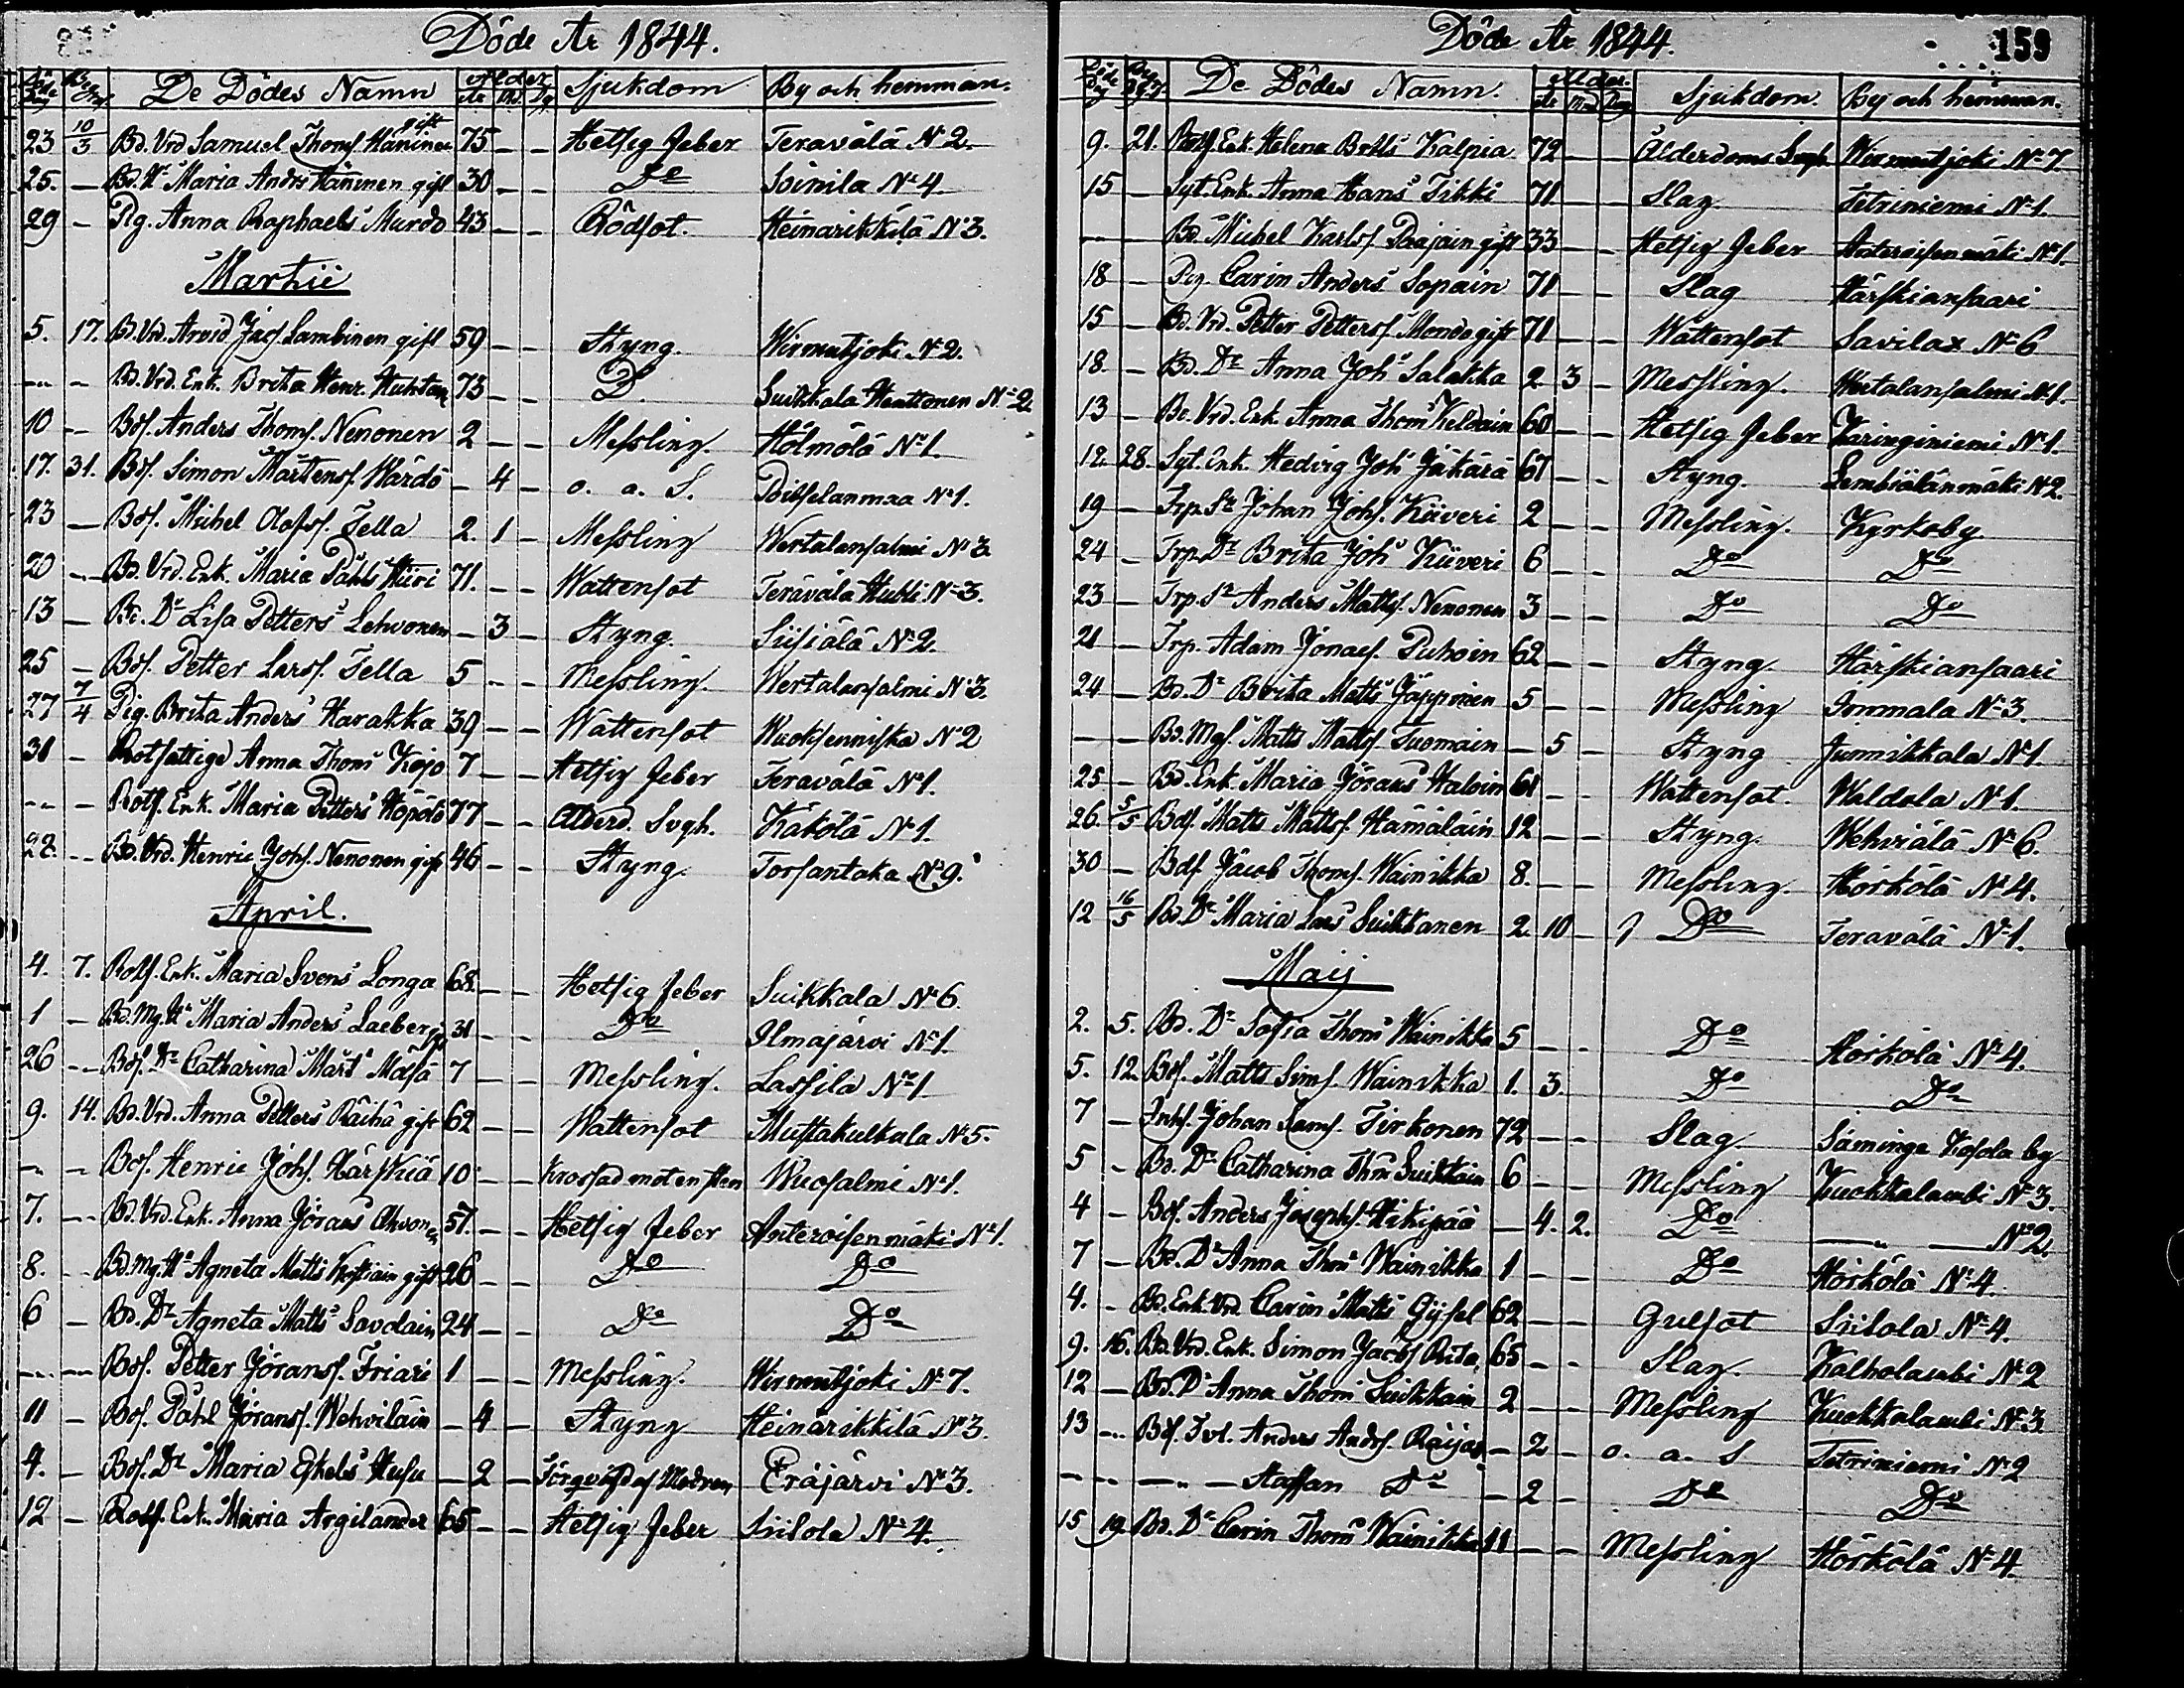 Döde År 1844.
Döde Dag Begr. Dag De Dödes Namn Ålder år Md. Dg Sjukdom By och hemman.
23 10/3 Bd. Vrd Samuel Thoms. Häninen gift 75 — — Hetsig feber Terävälä No 2.
25. — Bd. H. Maria Andrs Häninen gift 30 — — Do Soinila No 4.
29 — Pig. Anna Raphaels Murdo 43 — — Rödsot. Heinarikkilä No 3.
Martii
5. 17. Bd. Vrd. Arvid Jacs. Lambinen gift 59 — — Styng. Wirmutjoki No 2.
— — Bd. Vrd. Enk. Brita Henr. 73 — — Do Suikkala No 2.
10 — Bds. Anders Thoms. Nenonen 2 — — Messling. Hölmölä No 1.
17. 31. Bds. Simon Mårtens. Wärdö — 4 — o. a. S. No 1.
23 — Bds. Michel Olofss. Tella 2. 1 — Messling Wertalansalmi No 3.
20 — Bd. Vrd. Enk. Maria Påhls Hiiri 71. — — Wattensot Terävälä Hubli No 3.
13 — Bd. Dr Lisa Petters Lehvonen — 3 — Styng. Siisiälä No 2.
25 — Bds. Petter Larss. Tella 5 — — Messling. Wertalansalmi No 3.
27 7/4 Pig. Brita Anders Harakka 39 — — Wattensot Wuoksenniska No 2
31 — Rotfattige Anna Thoms Kojo 7 — — Hetsig feber Terävälä No 1.
— — Rotf. Enk. Maria Petters Höpölö 77 — — Ålderd. Svgh. Käkölä No 1.
28. — Bd. Vrd. Henric Johs. Nenonen gift 46 — — Styng. Torsantaka No 9.
April.
4. 7. Rotf. Enk. Maria Svens Longa 68. — — Hetsig feber Suikkala No 6.
1 — Bd. Mg. H. Maria Anders gift 31 — — Do Ilmajärvi No 1.
26 — Bds. Dr Catharina Mårt. Mälsä 7 — — Messling. Lassila No 1.
9. 14. Bd. Vrd. Anna Petters Räihä gift 62 — — Wattensot Mustakulkala No 5.
— — Bds. Henric Johs. Härskiä 10 — — Krossad mot en sten Wuosalmi No 1.
7. — Bd. Vrd. Enk. Anna Jörans Ahvonen 57. — — Hetsig feber Anteroisenmäki No 1.
8. — Bd. Mg. H. Agneta Matts gift 26 — — Do Do
6 — Bd. Dr Agneta Matts Savolain 24 — — Do Do
— — Bds. Petter Jörans. Friari 1 — — Messling. Wirmutjoki No 7.
11 — Bds. Påhl Jörans. Wehviläin — 4 — Styng Heinarikkilä No 3.
4. — Bds. Dr Maria Eskels Husu — 2 — af Modren Eräjärvi No 3.
12 — Rotf. Enk. Maria Argilander 65 — — Hetsig feber Siitola No 4.
Döde År 1844.
159
Döde Dag Begr. Dag De Dödes Namn. Ålder. år Md Dag Sjukdom. By och hemman.
9. 21. Rotf. Enk. Helena Bertils Kalpia 72 — — Ålderdoms Svgh. Wirmutjoki No 7.
15 — Syt. Enk. Anna Hans Tikki 71 — — Slag Tetriniemi No 1.
— — Bd. Michel Karls. Paajain gift 33 — — Hetsig feber Anteroisenmäki No 1.
18 — Pig. Carin Anders Sopain 71 — — Slag Härskiansaari
15 — Bd. Vrd. Petter Petters. Mondo gift 71 — — Wattensot Savilax No 6
18. — Bd. Dr Anna Joh. Salakka 2 3 — Messling. Wertalansalmi No 1.
13 — Bd. Vrd. Enk. Anna Thoms Keldain 60 — — Hetsig feber Karinginiemi No 1.
12. 28. Syt. Enk. Hedvig Joh. Jäkärä 67 — — Styng. Lembiälänmäki No 2.
19 — Trp. Sr Johan Johs. Kiiveri 2 — — Messling. Kyrkoby
24 — Trp. Dr Brita Johs Kiiveri 6 — — Do Do
23 — Trp. Sr Anders Matts. Nenonen 3 — — Do Do
21 — Trp. Adam Jonaes. Puhoin 62 — — Styng. Härskiansaari
24 — Bd. Dr Brita Matts Jäppinen 5 — — Messling Immala No 3.
— — Bd. Mgs. Matts Matts. Tuomain — 5 — Styng Junnikkala No 1
25 — Bd. Enk. Maria Jörans Haloin 61 — — Wattensot. Waldola No 1.
26. 5/5 Bds. Matts Matts. Hämäläin 12 — — Styng. Wehviälä No 6.
30 — Bds. Jacob Thoms. Wainikka 8. — — Messling. Hörkölä No 4.
12 16/5 Bd. Dr Maria Lars Suikkanen 2 10 — Do Terävälä No 1.
Maij
2. 5. Bd. Dr Sofia Thoms Wainikka 5 — — Do Hörkölä No 4.
5. 12. Bds. Matts Sims. Wainikka 1. 3. Do Do
7 — Inhs. Johan Sams. Tirkonen 72 — — Slag. Säminge Kosola by
5 — Bd. Dr Catharina Thms Suikkain 6 — — Messling Kuokkalambi No 3.
4 — Bds. Anders Josephs. Hikipää — 4. 2. Do — " — No 2.
7 — Bd. Dr Anna Thoms Wainikka 1 — — Do Hörkölä No 4.
4. — Bd. Enk. Vrd. Carin Matts Gijsel 62 — — Gulsot Siitola No 4.
9. 16. Bd. Vrd. Enk. Simon Jacobs Rita 65 — — Slag. Kalholambi No 2
12 — Bd. Dr Anna Thoms Suikkain 2 — — Messling Kuokkalambi No 3
13 — Bds. Tvl. Anders Anders. Räijas — 2 — o. a. S Tetriniemi No 2
— — — " — Staffan Do — 2 — Do Do
15 19 Bd. Dr Carin Thoms Wainikka 11 — — Messling Hörkölä No 4.